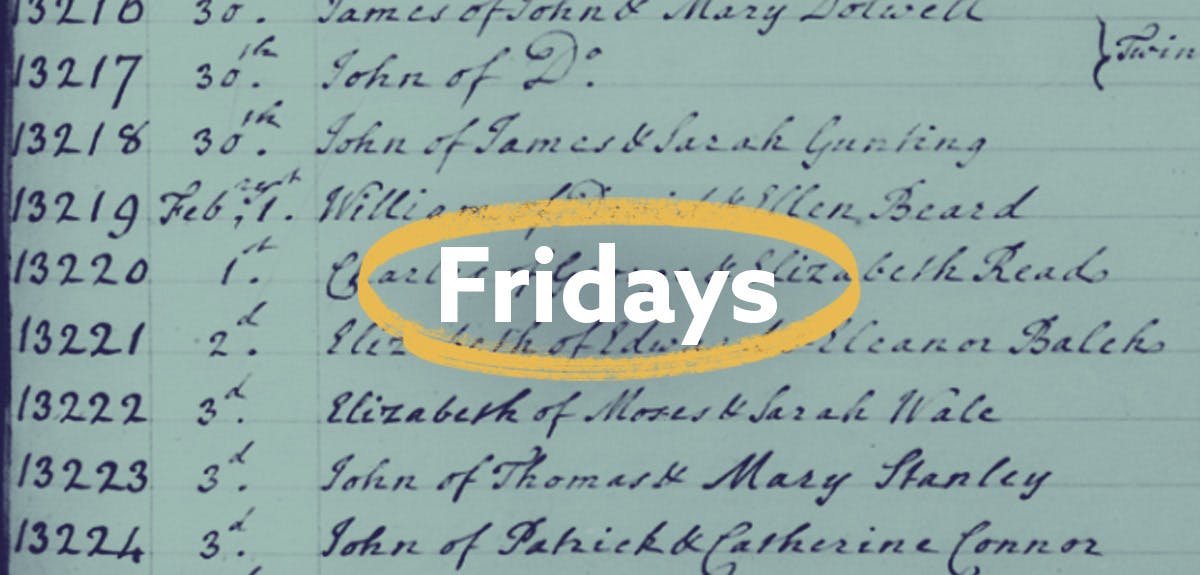 13216 30. James of John & Mary Dolwell
13217 30.th John of Do. } Twin
13218 30.th John of James & Sarah Gunting
13219 Feb. 1. William of & Ellen Beard
13220 1.st Charles of George & Elizabeth Read
Fridays
13221 2.d Elizabeth of Edward Eleanor Balch
13222 3.d Elizabeth of Moses & Sarah Wale
13223 3.d John of Thomas & Mary Stanley
13224 3.d John of Patrick & Catherine Connor